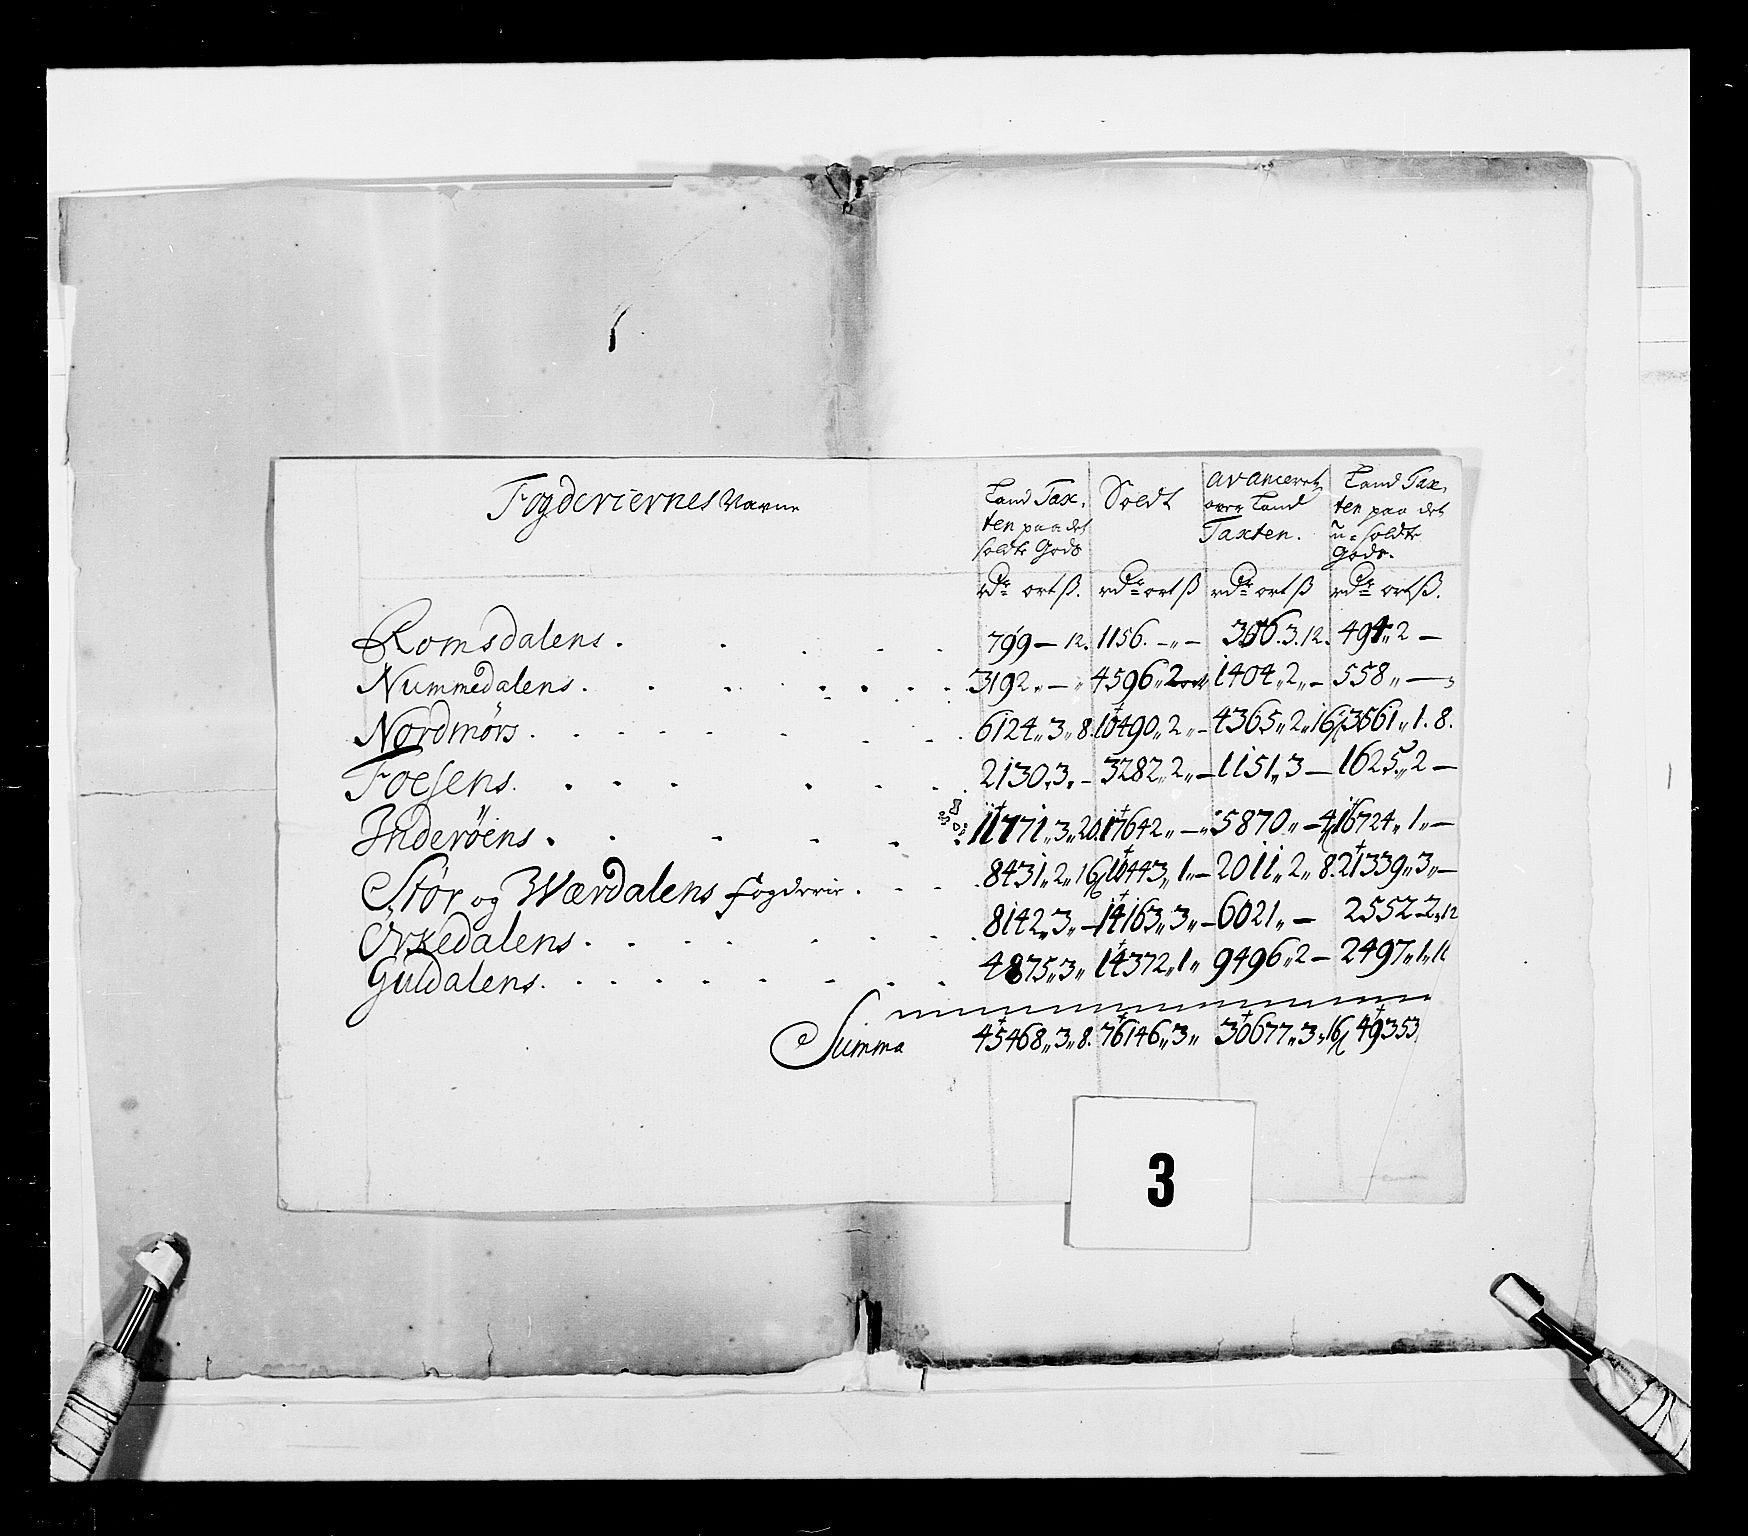 Fogderiernes Navne
Land Tax,
ten paa det
soldte Gods
Soldt
avanceret
over Land
Taxten.
Land Tax,
ten paa det
u-soldte
Gods.
rdr ort ß. rdr ort ß rdr ort ß rdr ort ß.
Romsdalens . . . . 799 — 12. 1156. -„- 356.3.12. 494„2 —
Nummedalens . . . . . . . 3192„ — „ 4596„2 1404„2„— 558„ — „
Nordmørs . . . . . . . . 6124„3„8. 10490„2„— 4365„2„16 3561„1.8.
Foesens . . . . . . . 2130.3.— 3282„2„— 1151„3 — 1625„2 —
Inderøens . . . . . 11771„3„20. 17642„—„ 5870„—4 16724„1„—
Stør og Wærdalens fogderie . . . . 8431„2„16 10443„1„— 2011„2„8. 21339„3„—
Orkedalens . . . . . . . . 8142„3„— 14163„3„— 6021„— 2552„2„12
Guldalens . . . . . . . . 4875„3„ 14372„1„ 9496„2 — 2497„1„11
Summa 45468„3„8. 76146„3„ 30677„3„16 49353
3